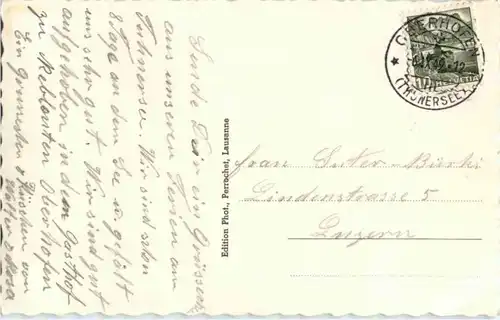 Sende Dir ein Grüssech
aus unseren Ferien am
Thunersee. Wir sind schon
8 Tage an dem See u. gefällt
sehr gut. Wir sind gut
aufgehoben in dem Gasthof
zu Rebleuten Oberhofen
Ein Grüessen & Küschen von
Walter & Rosa
Edition Phot., Perrochet, Lausanne
OBERHOFEN
(THUNERSEE)
HELVETIA
Frau Suter-Bürki
Lindenstrasse 5
Luzern